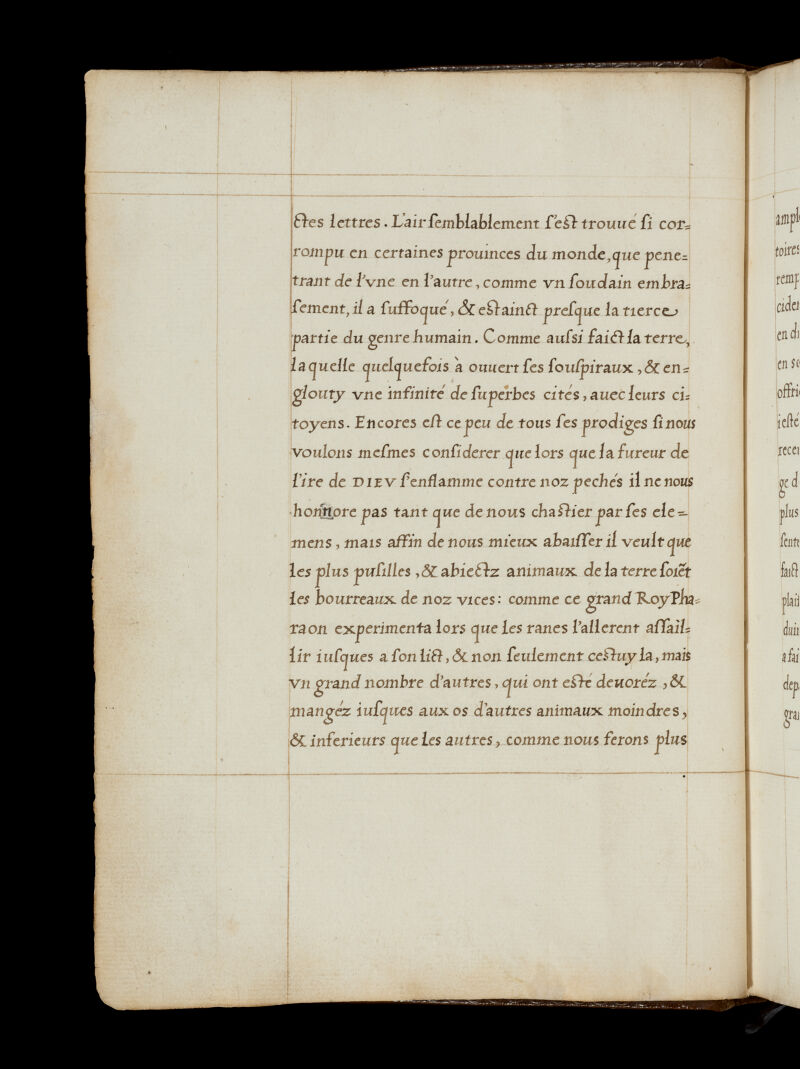 ctes lettres. L'air semblablement s'est trouué si cor=
rompu en certaines prouinces du monde, que pene=
trant de l'vne en l'autre, comme vn soudain embra=
sement, il a suffoqué, & estainct presque la tierce
partie du genre humain. Comme aussi faict la terre,
laquelle quelquefois à ouuert ses souspiraux, & en=
glouty vne infinité de superbes cités, auec leurs ci=
toyens. Encores est ce peu de tous ses prodiges si nous
voulons mesmes considerer que lors que la fureur de
l'ire de DIEV s'enflamme contre noz pechés il ne nous
honnore pas tant que de nous chastier par ses ele=
mens, mais affin de nous mieux abaisser il veult que
les plus pusilles, & abiectz animaux de la terre soiẽt
les bourreaux de noz vices: comme ce grand Roy Pha=
raon experimenta lors que les ranes l'allerent assail=
lir iusques a son lict, & non seulement cestuy la, mais
vn grand nombre d'autres, qui ont esté deuoréz, &
mangéz iusques aux os d'autres animaux moindres,
& inferieurs que les autres, comme nous ferons plus
ampl
toires
remp
cider
en di
en se
offri
iesté
recei
ge d
plus
sente
faict
plais
duit
a fai
dep
gran